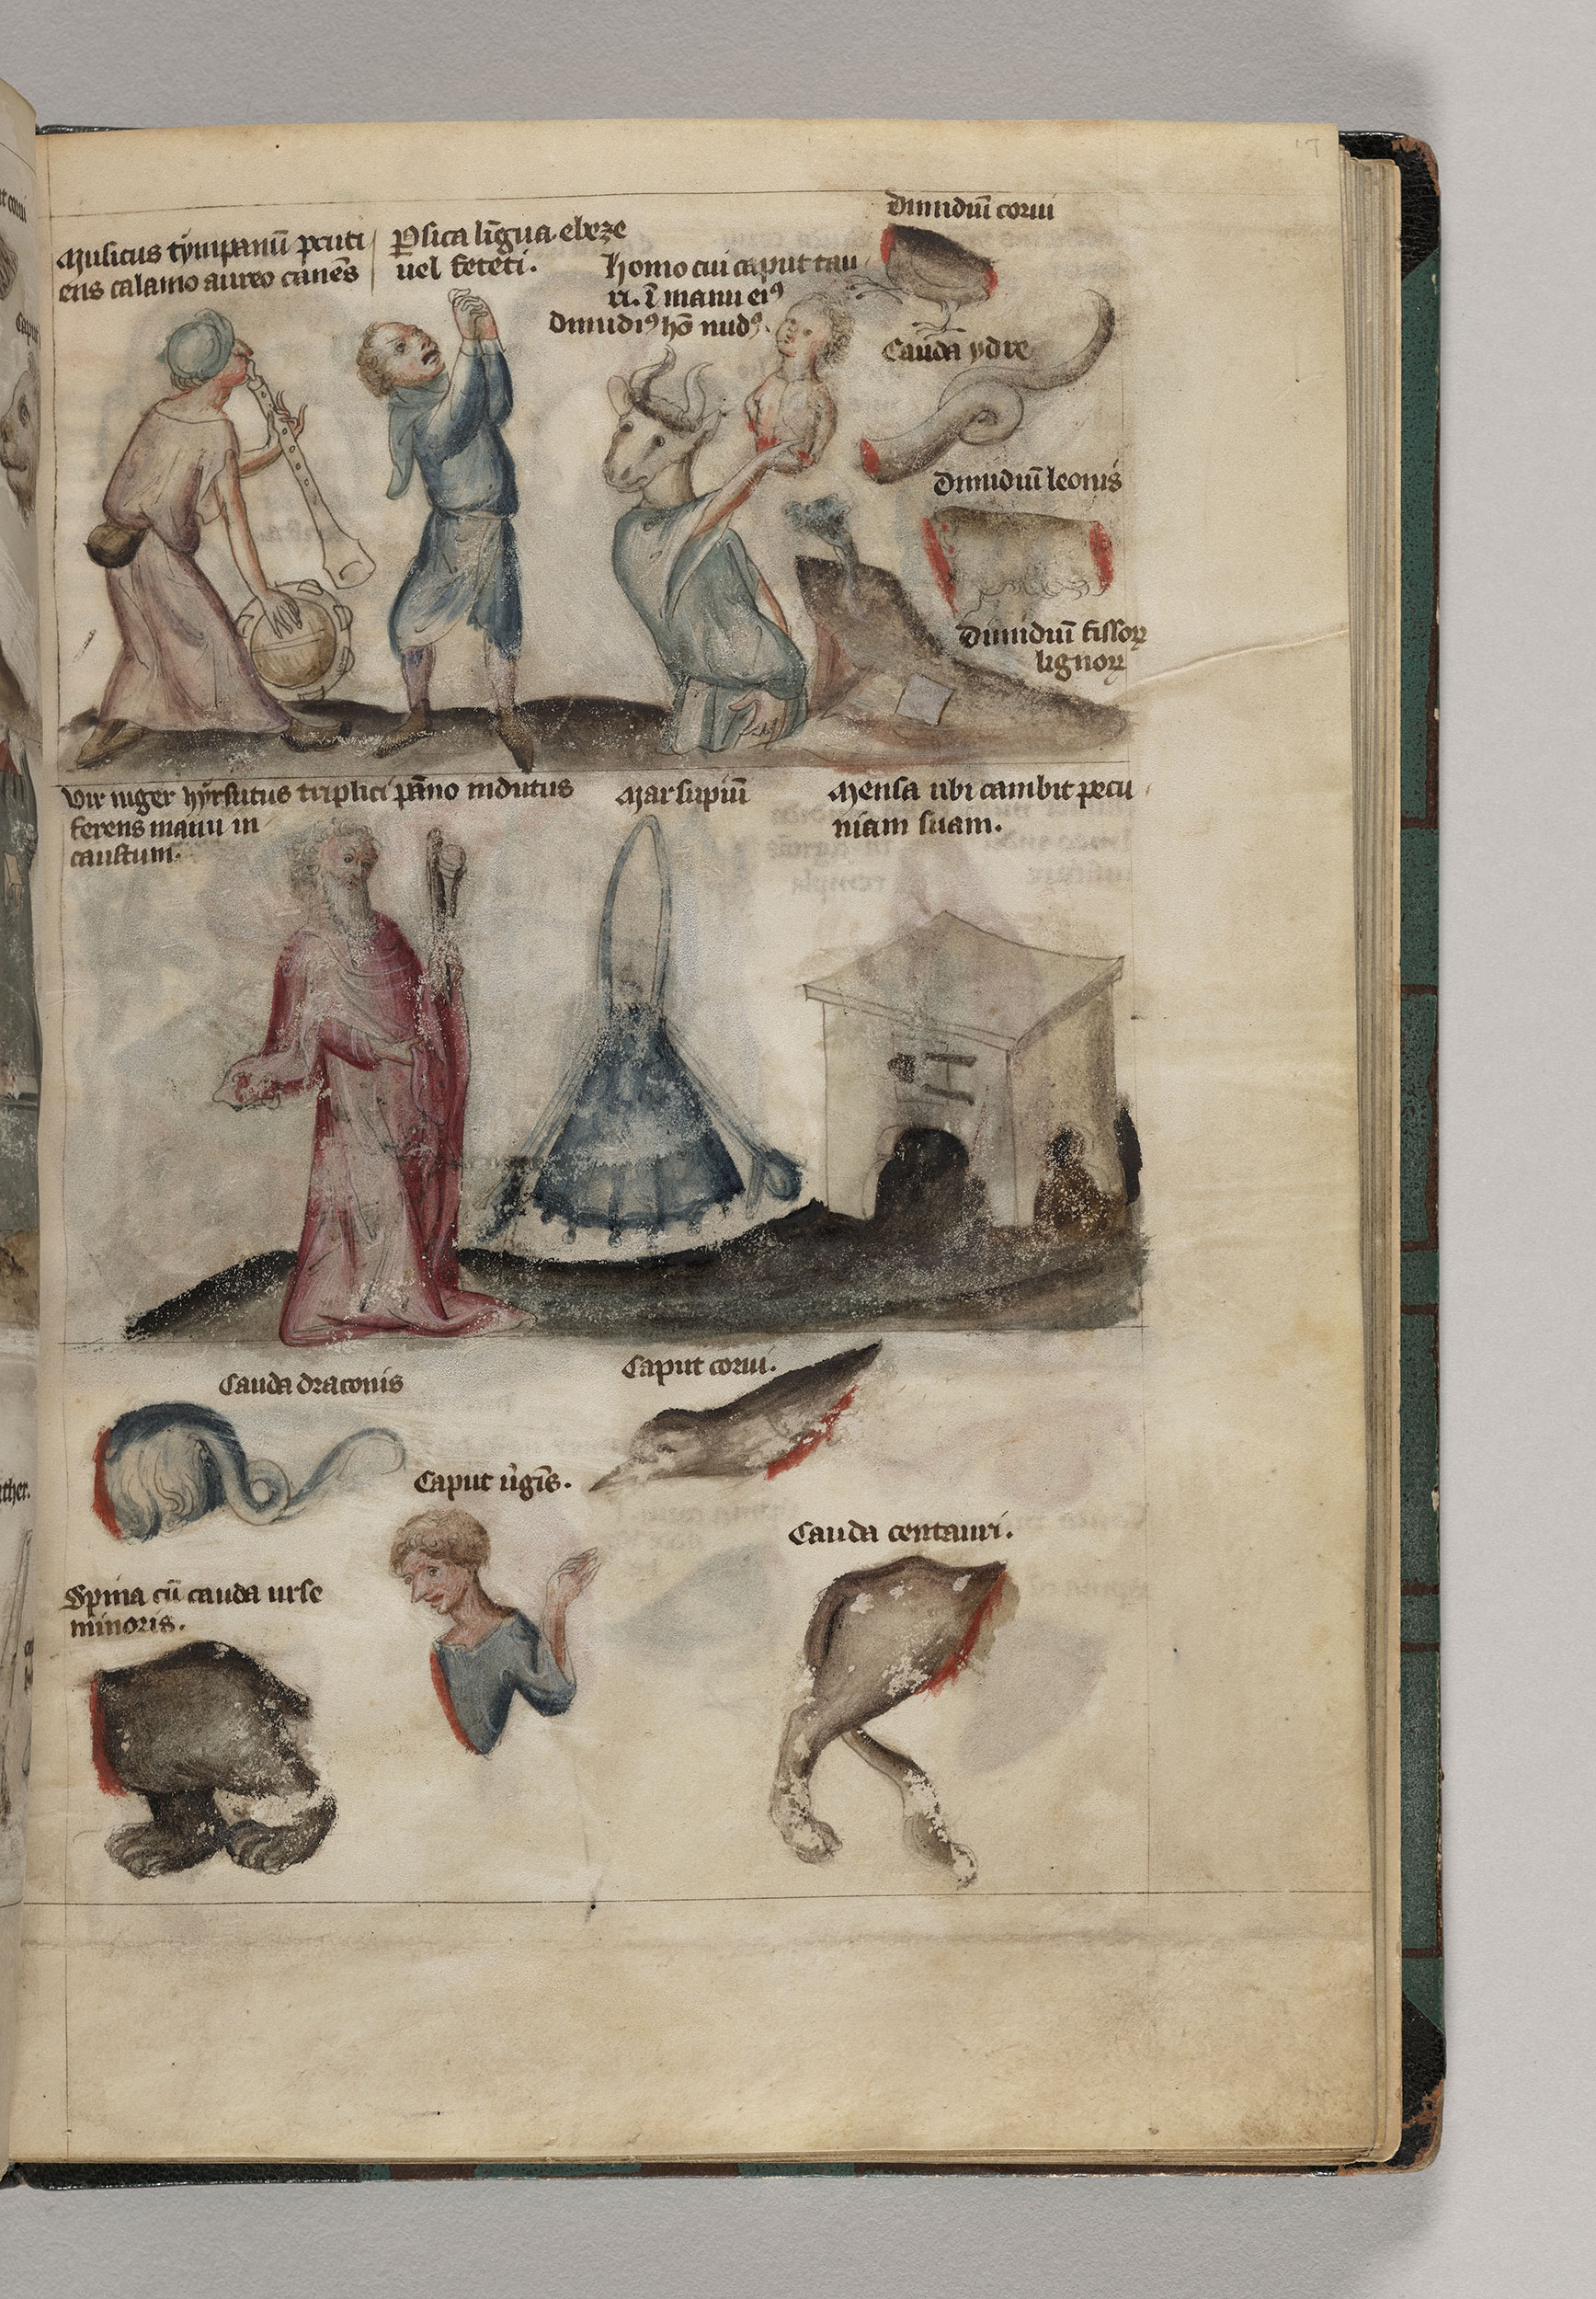 Musicus tympanū pcuti
ens calamo aureo canēs
Psica līgua. ebeze
uel feteti.
Homo cui caput tau
ri. ī manu eiꝰ
dimidiꝰ hō nudꝰ.
Dimidiū corui
Cauda ydre
Dimidiū leonis
Dimidiū fissoꝝ
lignoꝝ
Vir niger hyrsutus triplici pāno indutus
ferens manu in
caustum.
Marsupiū
Mensa ubi cambit pecu
niam suam.
Cauda draconis
Caput corui.
Caput ūgīs.
Cauda centauri.
Spina cū cauda urse
minoris.
17